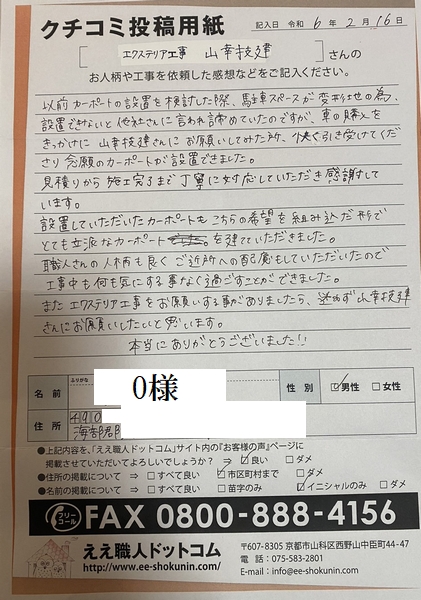 クチコミ投稿用紙
記入日 令和 6年 2月 16日
エクステリア工事 山幸技建 さんの
お人柄や工事を依頼した感想などをご記入ください。
以前カーポートの設置を検討した際、駐車スペースが変形地の為、
設置できないと他社さんに言われ諦めていたのですが、車の購入を
きっかけに 山幸技建さんにお願いしてみた所、快く引き受けてくだ
さり念願のカーポートが設置できました。
見積りから施工完了まで丁寧に対応していただき感謝して
います。
設置していただいたカーポートもこちらの希望を組み込だ形で
とても立派なカーポート を建てていただきました。
職人さんの人柄も良く ご近所への配慮もしていただいたので
工事中も何も気にする事なく過ごすことができました。
また エクステリア工事をお願いする事がありましたら、必ず山幸技建
さんにお願いしたいと思います。
本当にありがとうございました!!
ふりがな
名前 O様 性別 ☑男性 □女性
住所 〒490
海部郡
●上記内容を、「ええ職人ドットコム」サイト内の『お客様の声』ページに
掲載させていただいてよろしいでしょうか? ⇒ ☑良い □ダメ
●住所の掲載について ⇒ □すべて良い ☑市区町村まで □ダメ
●名前の掲載について ⇒ □すべて良い □苗字のみ ☑イニシャルのみ □ダメ
フリーコール FAX 0800-888-4156
ええ職人ドットコム
http://www.ee-shokunin.com
〒607-8305 京都市山科区西野山中臣町44-47
電話:075-583-2801
E-mail:info@ee-shokunin.com